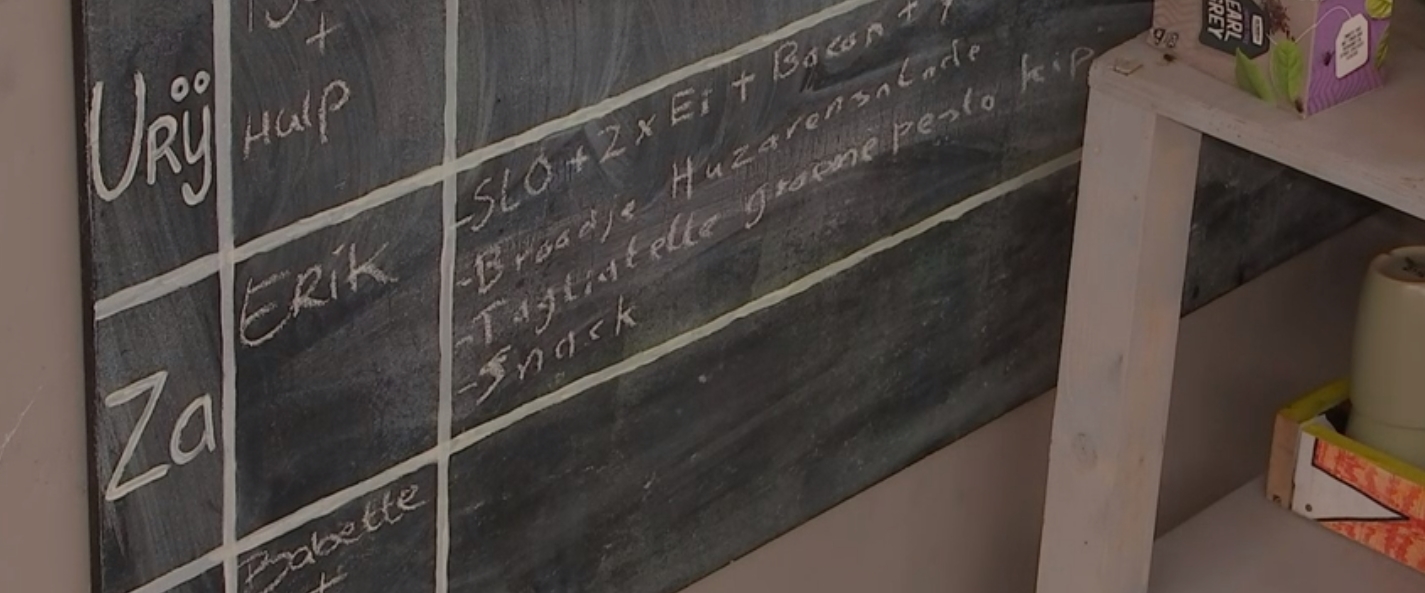 +
VRIJ
Hulp
-SLO + 2x Ei + Bacon +
-Broodje Huzarensalade
-Tagliatelle groene pesto kip
-Snack
Za
ERiK
Babette
+
EARL
GREY